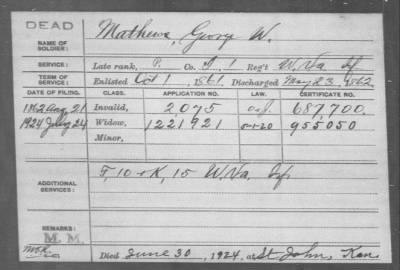 DEAD
NAME OF SOLDIER: Mathews, Georg W.
SERVICE: Late rank, P. Co. G, 1 Reg't W. Va. Inf.
TERM OF SERVICE: Enlisted Oct 1, 1861 Discharged May 23, 1862
DATE OF FILING. CLASS. APPLICATION NO. LAW. CERTIFICATE NO.
Aug 21 Invalid, 2,075 687,700.
1924 July 24 Widow, 1221921 5-1-20 955050
Minor,
ADDITIONAL SERVICES: F, 10 & K, 15 W. Va. Inf.
REMARKS:
M. M.
Died June 30, 1924, at St John, Kan